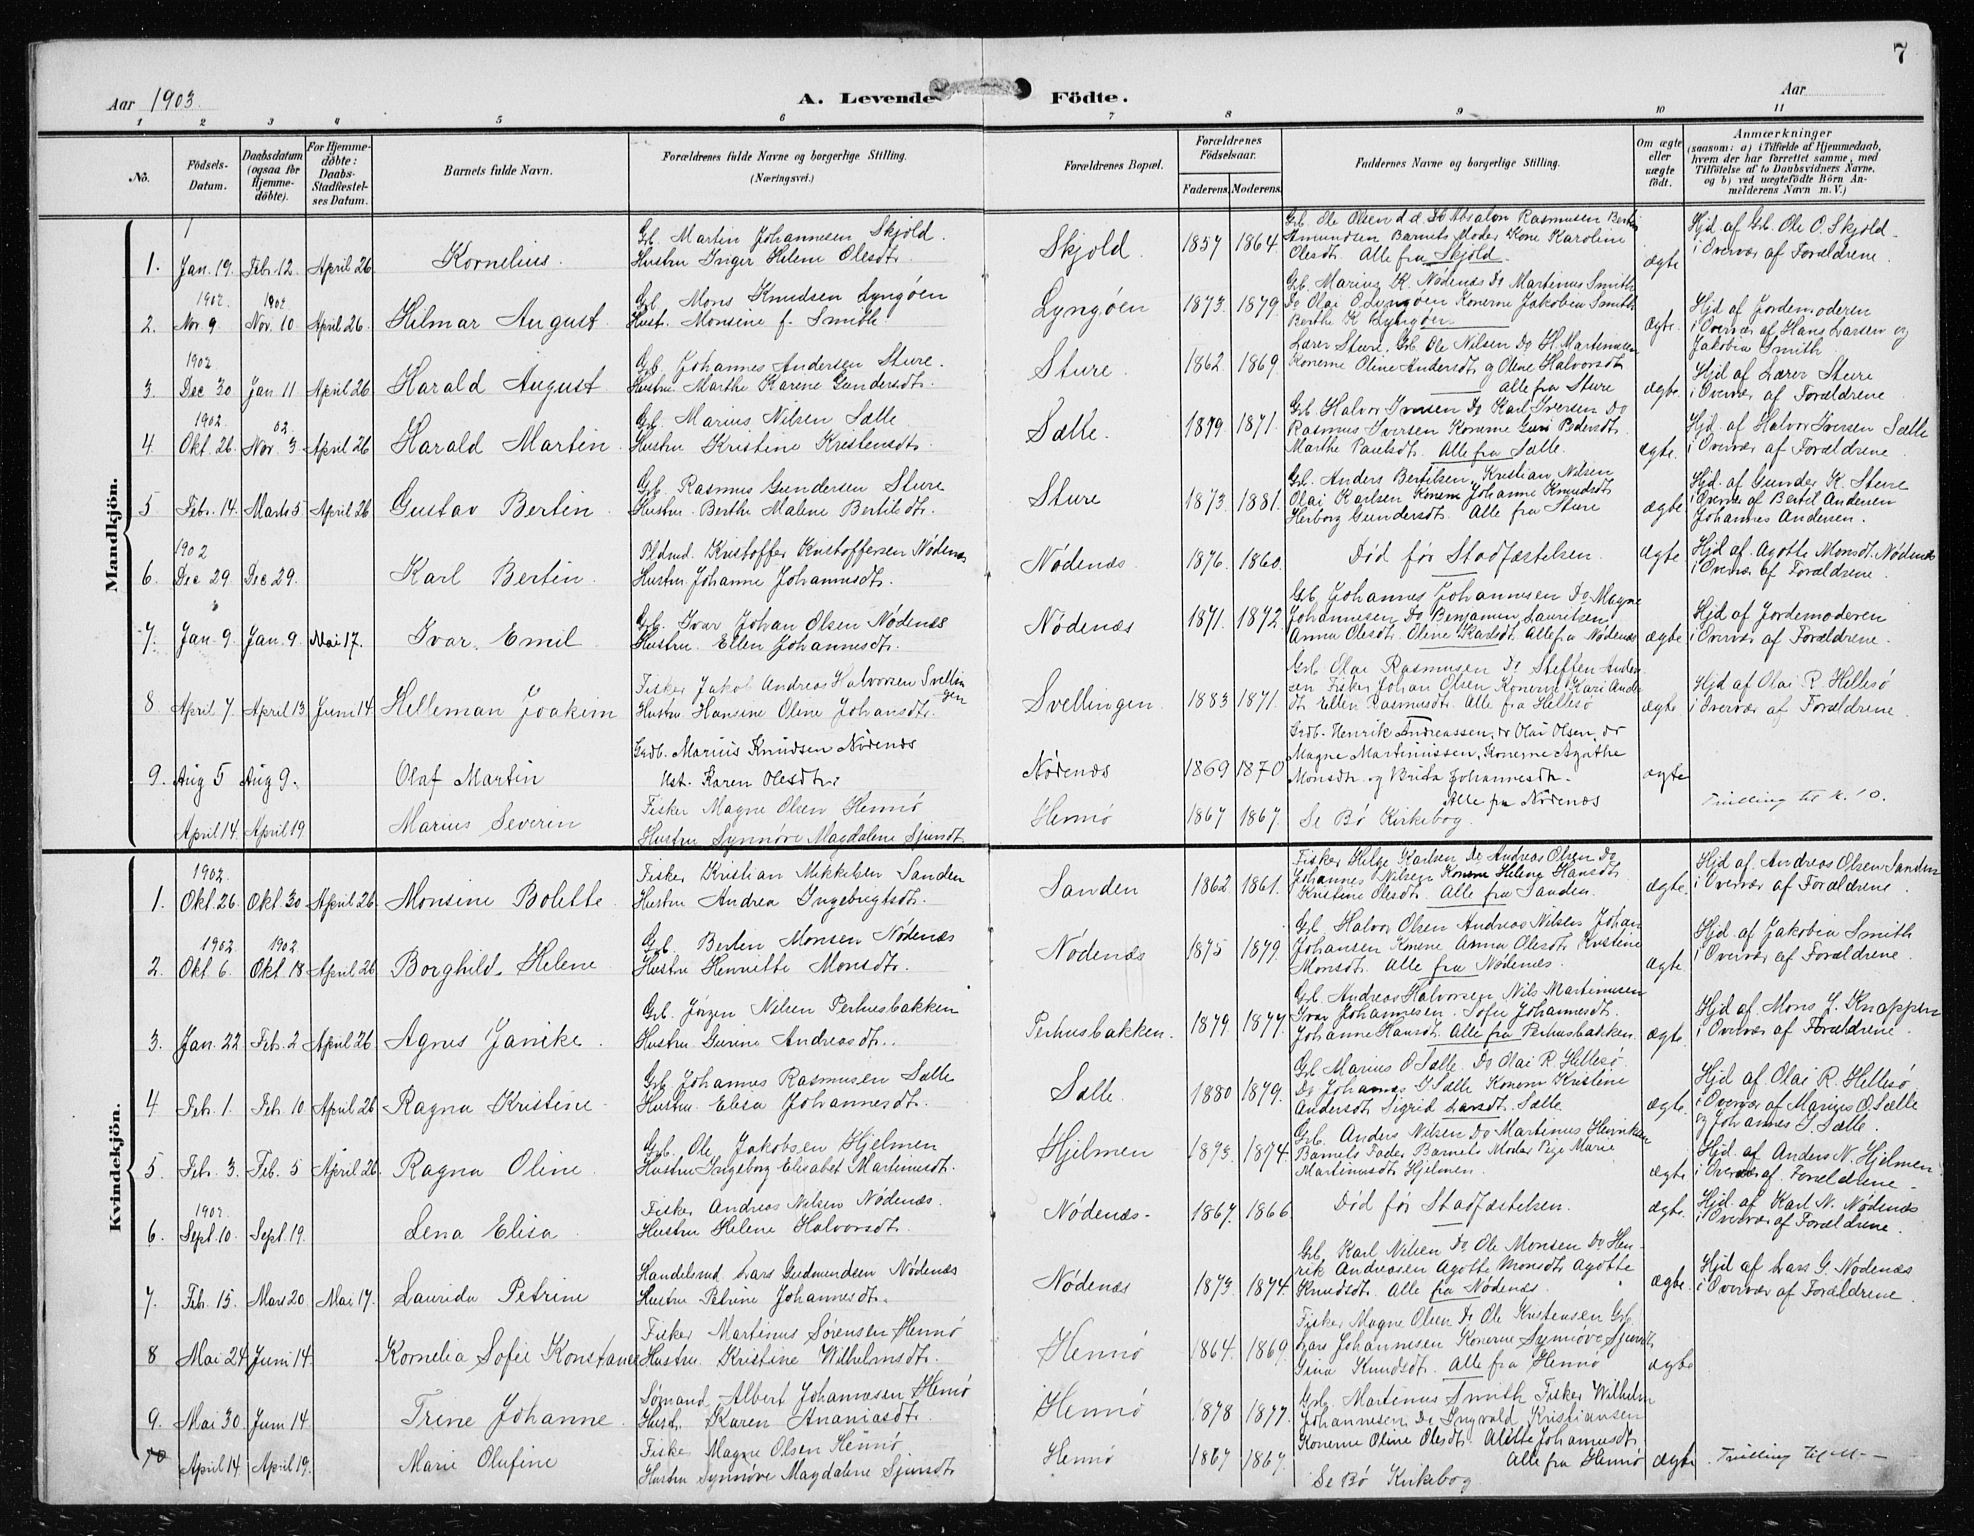 7
Aar 1903.
A. Levende Födte.
Aar
1 2 3 4 5 6 7 8 9 10 11
No.
Födsels-Datum.
Daabsdatum (ogsaa for Hjemmedøbte).
For Hjemmedøbte: Daabs-Stadfæstelses Datum.
Barnets fulde Navn.
Forældrenes fulde Navne og borgerlige Stilling. (Næringsvei.)
Forældrenes Bopæl.
Forældrenes Födselsaar.
Faderens. Moderens.
Faddernes Navne og borgerlige Stilling.
Om ægte eller uægte født.
Anmærkninger (saasom: a) i Tilfælde af Hjemmedaab, hvem der har forrettet samme, med Tilföielse af to Daabsvidners Navne, og b) ved uægtefödte Börn Anmelderens Navn m. V.)
Mandkjön.
1. Jan. 19. Feb. 12. April 26 Kornelius.
Grb. Martin Johannesen Skjold.
Hustru Inger Helene Olesdt.
Skjold. 1857 1864
Grb. Ole Olsen d.d. Do Absalon Rasmusen Bertin
Amundsen Barnets Moder Kone Karoline
Olesdt. Alle fra Skjold.
ægte
Hjd. af Grb. Ole O. Skjold
i Overvær af Forældrene.
2. 1902. Nov. 9. 1902 Nov. 10 April 26. Hilmar August.
Grb. Mons Knudsen Lyngöen
Hust. Monsine f. Smith
Lyngöen 1873. 1879
Grb. Marius K. Nødenæs Do Martinus Smith
Do Olai O. Lyngöen Konerne Jakobia Smith
Berthe K Lyngöen
ægte.
Hjd. af Jordemoderen
i Overvær af Hans Larsen og
Jakobia Smith.
3. 1902 Dec 30 Jan 11 April 26 Harald August
Grb. Johannes Andersen Sture.
Hustru. Marthe Karine Gundersdt.
Sture. 1862 1869
Lærer Sture. Grb. Ole Nilsen Do H. Martinusen
Konerne Oline Andersdt og Oline Halvorsdt
alle fra Sture
ægte.
Hjd af Lærer Sture
i Overvær af Forældrene.
4. 1902. Okt. 26. 02. Nov. 3 April 26 Harald Martin.
Grb. Marius Nilsen Sælle
Hustru Kristine Kristensdt.
Sælle. 1879 1871.
Grb. Halvor Iversen Do Karl Iversen Do
Rasmus Iversen Konerne Guri Pedersdt.
Marthe Paulsdt. Alle fra Sælle.
ægte.
Hjd. af Halvor Iversen Sælle
i Overvær af Forældrene
5 Febr. 14. Marts 5 April 26 Gustav Bertin.
Grb. Rasmus Gundersen Sture
Hustru. Berthe Malene Bertilsdt.
Sture 1873. 1881.
Grb. Anders Bertilsen, Kristian Nilsen
Olai Karlsen Konerne Johanne Knudsdt
Herborg Gundersdt. Alle fra Sture
ægte
Hjd. af Gunder K. Sture
i Overvær af Bertel Andersen
Johannes Andersen.
6. 1902 Dec 29. Dec 29. Karl Bertin.
Pldmd. Kristoffer Kristoffersen Nødenæs
Hustru Johanne Johannesdt.
Nødenæs. 1876. 1860.
Død før Stadfæstelsen.
ægte
Hjd. af. Agotte Monsdt. Nødenæs
i Overvær af Forældrene.
7. Jan. 9. Jan. 9. Mai 17. Ivar. Emil
Grb. Ivar Johan Olsen Nødenæs
Hustru. Ellen Johannesdt.
Nødenæs 1871. 1872
Grb. Johannes Johannesen Do Magne
Johannesen Do Benjamin Lauritsen,
Anna Olesdt. Oline Karlsdt. Alle fra Nødenæs
ægte
Hjd af Jordemoderen
i Overvær af Forældrene.
8 April 7 April 13 Juni 14 Helleman Joakim
Fisker Jakob Andreas Halvorsen Svellingen
Hustru Hansine Oline Johansdt.
Svellingen. 1883 1871.
Grb. Olai Rasmusen Do Steffen Andersen
Fisker Johan Olsen Konerne Kari Andersdt
Ellen Rasmusdt. Alle fra Hellesø
ægte
Hjd af Olai R. Hellesø
i Overvær af Forældrene.
9. Aug 5 Aug 9. Olaf Martin
Grdb. Marius Knudsen Nødenæs
Hst. Karen Olesdtr.
Nødenæs 1869 1870
Grdb. Henrik Andreassen, do Olai Olsen, do
Magne Martinussen, Konerne Agathe
Monsdtr og Brita Johannesdtr.
Alle fra Nødenæs
ægte
April 14. April 19 Marius Severin
Fisker Magne Olsen Hennø
Hustru Synnøve Magdalene Sjursdt.
Hennø 1867 1867.
Se Bø Kirkebog.
Tvilling til K. 10.
Kvindekjön.
1. 1902. Okt. 26. Okt. 30 April 26 Monsine Bolette.
Fisker Kristian Mikkelsen Sanden
Hustru Andrea Ingebrigtsdt.
Sanden 1862 1861.
Fisker Helge Karlsen Do Andreas Olsen Do
Johannes Nilsen Konerne Helene Hansdt.
Kristine Olesdt. Alle fra Sanden.
ægte.
Hjd af. Andreas Olsen Sanden
i Overvær af Forældrene.
2. 1902 Okt. 6. 1902 Okt 18 April 26 Borghild. Helene.
Grb. Bertin Monsen Nødenæs
Hustru Henriette Monsdt.
Nødenæs 1875 1879.
Grb. Halvor Olsen Andreas Nilsen Johan
Johansen Konerne Anna Olesdt. Kristine
Monsdt. Alle fra Nødenæs.
ægte.
Hjd. af Jakobia Smith
i Overvær af Forældrene.
3. Jan. 22 Feb. 2 April 26 Agnes Janike.
Grb. Jörgen Nilsen Perhusbakken
Hustru Gurine Andreasdt.
Perhusbakken. 1879. 1877.
Grb. Andreas Halvorsen, Nils Martinusen
Ivar Johannesen. Sofie Johannesdt.
Johanne Hansdt. Alle fra Perhusbakken.
ægte.
Hjd af Mons J. Knappen
i Overvær af Forældrene.
4 Feb. 1. Feb. 10 April 26 Ragna Kristine.
Grb. Johannes Rasmusen Sælle
Hustru. Elisa Johannesdt.
Sælle. 1880 1879.
Grb. Marius O Sælle. Do Olai R. Hellesø.
Do Johannes I Sælle Konerne Kristine
Andersdt. Sigrid Larsdt. Sælle.
ægte.
Hjd af Olai R. Hellesø
i Overvær af Marius O. Sælle
og Johannes I. Sælle.
5 Feb. 3. Feb. 5 April 26. Ragna Oline.
Grb. Ole Jakobsen Hjelmen
Hustru Ingeborg Elisabet Martinusdt.
Hjelmen 1873. 1874.
Grb. Anders Nilsen Do Martinus Henriksen
Barnets Fader Barnets Moder Pige Marie
Martinusdt Hjelmen.
ægte
Hjd. af Anders N. Hjelmen
i Overvær af. Forældrene.
6. 1902. Sept. 10. Sept. 19. Lena Elisa.
Fisker. Andreas Nilsen Nødenæs.
Hustru Helene Halvorsdt.
Nødenæs. 1867. 1866.
Død før Stadfæstelsen.
ægte.
Hjd. af Karl N. Nødenæs
i Overvær af Forældrene.
7. Feb. 15. Mars 20 Mai 17. Laurida Petrine
Handelsmd Lars Gudmundsen Nødenæs
Hustru Petrine Johannesdt.
Nødenæs 1873. 1874.
Grb. Karl Nilsen Do Ole Monsen Do Henrik
Andreasen Agotte Monsdt Agotte
Knudsdt. Alle fra Nødenæs.
ægte.
Hjd af Lars G. Nødenæs
i Overvær af Forældrene.
8 Mai 24 Juni 14. Kornelia Sofie Konstanse
Fisker Martinus Sörensen Hennø
Hustru. Kristine Wilhelmsdt.
Hennø 1864. 1869.
Fisker Magne Olsen Do Ole Kristensen Grb.
Lars Johannesen Konerne Synnøve Sjursdt.
Gina Knudsdt. Alle fra Hennø
ægte
9. Mai 30 Juni 14. Trine Johanne.
Sømand Albert Johannesen Hennø
Hust. Karen Ananiasdt.
Hennø 1878 1877.
Grb. Martinus Smith Fisker Wilhelm
Johannesen Do Ingvald Kristiansen
Konerne Oline Olesdt. Alette Johannesdt.
Alle fra Hennø
10 April 14. April 19. Marie Olufine
Fisker Magne Olsen Hennø.
Hustru Synnøve Magdalene Sjursdt
Hennø 1867 1867.
Se Bø Kirkebog.
ægte.
Tvilling til M —